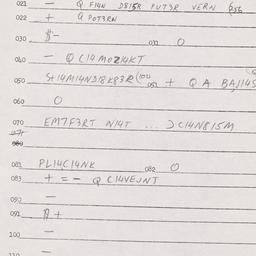 021 — Q FI4N D8I5R PUT3R VERN
022 + Q POT3RN
030 $- 032 O
040 — Q CI4MOZI4KT
050 St I4MI4ND18K83R 051 + Q A BAJI4S
060 O
070 EM7F3RT NI4T ... CI4N8I5M
071
080
081 PLI4CI4NK 082 O
083 + = — Q CI4VEJNT
090 —
091 +
100 —
110 —